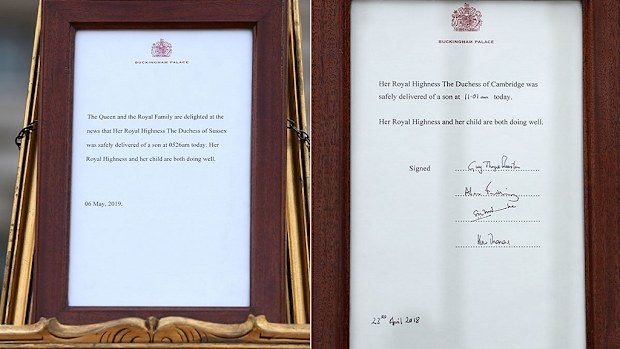 BUCKINGHAM PALACE
The Queen and the Royal Family are delighted at the
news that Her Royal Highness The Duchess of Sussex
was safely delivered of a son at 0526am today. Her
Royal Highness and her child are both doing well.
06 May, 2019.
BUCKINGHAM PALACE
Her Royal Highness The Duchess of Cambridge was
safely delivered of a son at 11·01 am today.
Her Royal Highness and her child are both doing well.
Signed
Guy
Alan
23rd April 2018